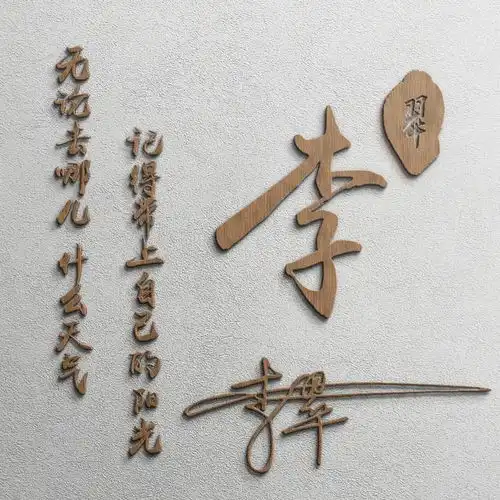 无论去哪儿 什么天气
记得带上自己的阳光
李
李